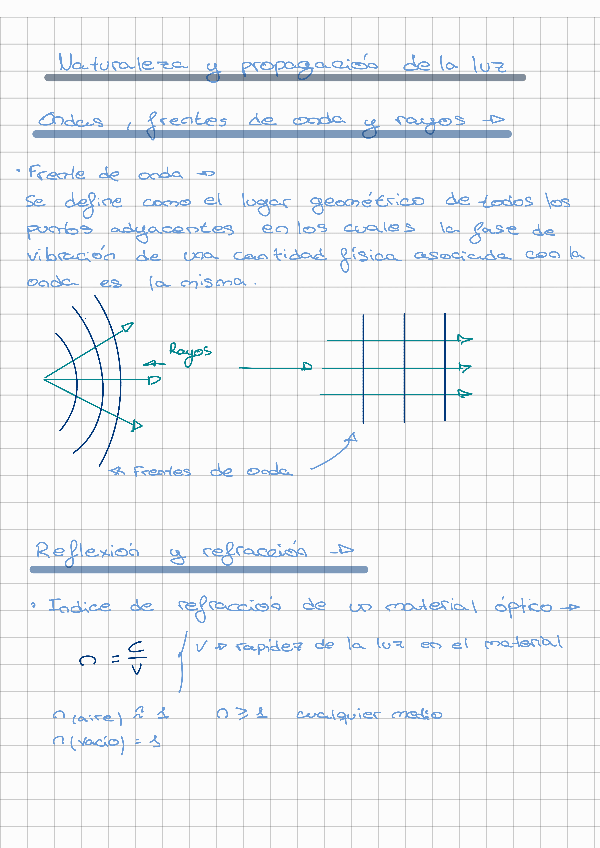 Naturaleza y propagación de la luz
Ondas, frentes de onda y rayos →
· Frente de onda →
Se define como el lugar geométrico de todos los
puntos adyacentes en los cuales la fase de
vibración de una cantidad física asociada con la
onda es la misma.
← Rayos
← Frentes de onda
Reflexión y refracción →
· Indice de refracción de un material óptico →
n = c/v / v → rapidez de la luz en el material
n(aire) ≈ 1 n ≥ 1 cualquier medio
n(vacío) = 1